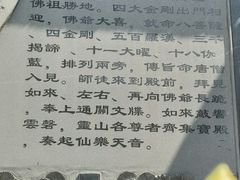 佛祖勝地。四大金剛出門相
迎，佛爺大喜，就命八菩薩
、四金剛、五百羅漢、三千
揭諦、十一大曜、十八伽
藍，排列兩旁，傳旨命唐僧
入見。師徒來到殿前，拜見
如來、左右、再向佛爺長跪
，奉上通關文牒。如來敲響
雲磬，靈山各尊者齊集寶殿
，奏起仙樂天音。